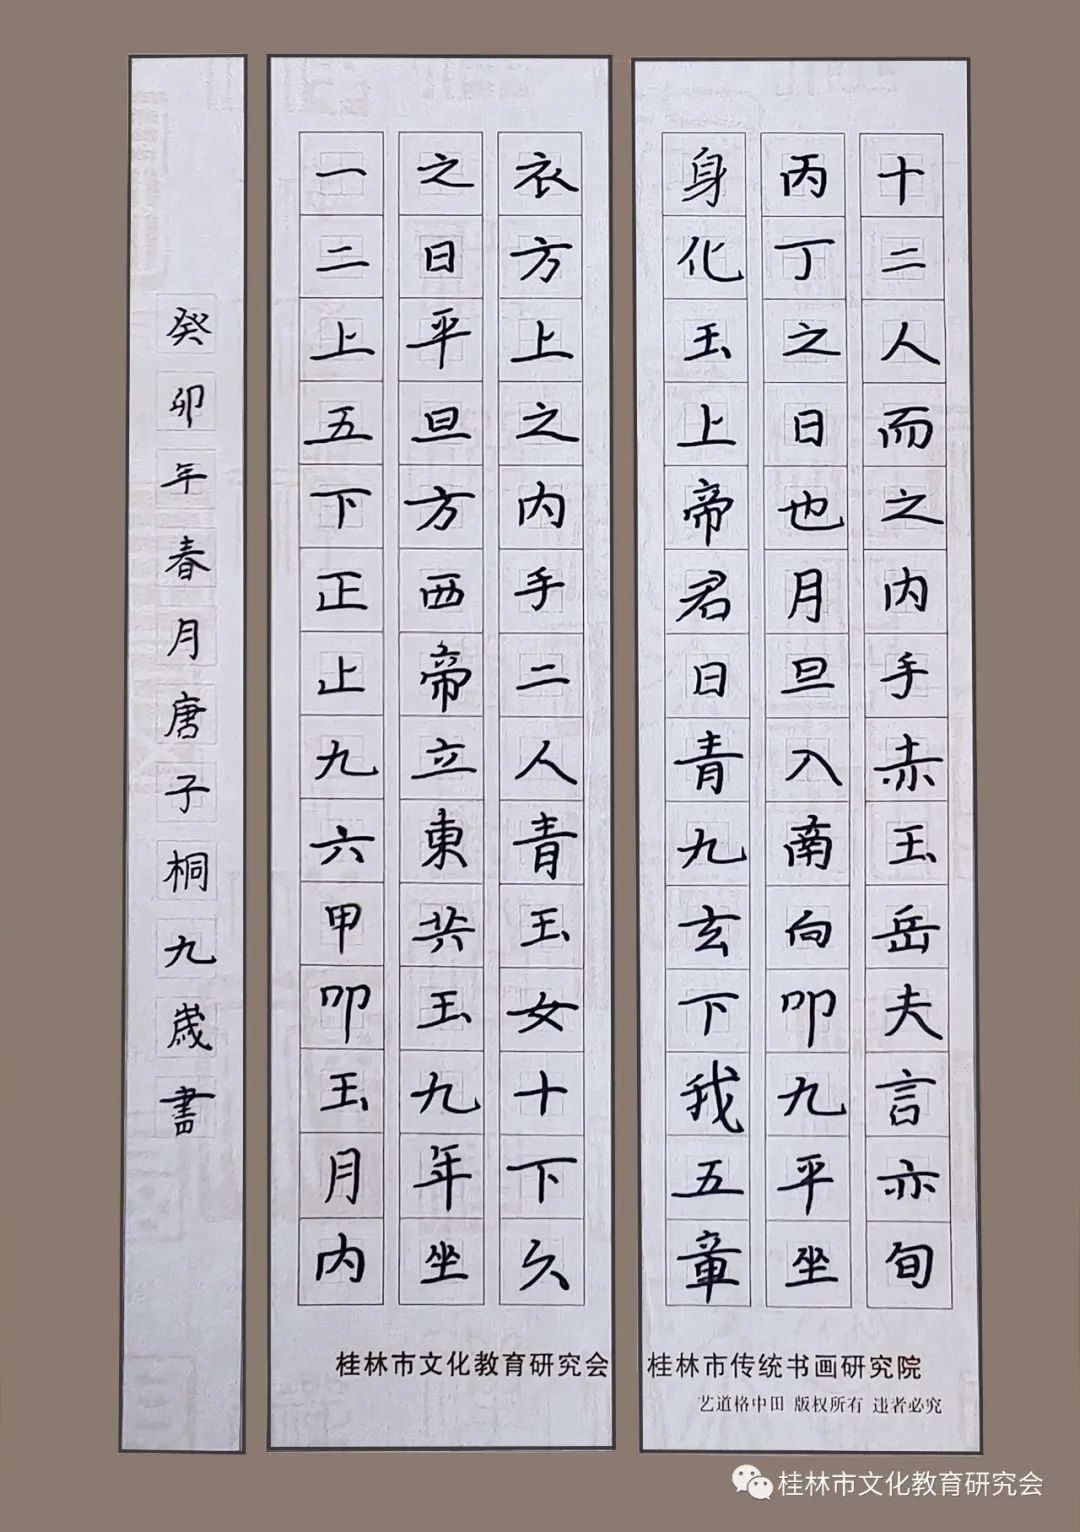 十二人而之内手赤玉岳夫言亦旬
丙丁之日也月旦入南向叩九平坐
身化玉上帝君日青九玄下我五章
衣方上之内手二人青玉女十下久
之日平旦方西帝立東共玉九年坐
一二上五下正止九六甲叩玉月内
癸卯年春月唐子桐九歲書
桂林市文化教育研究会
桂林市传统书画研究院
艺道格中田 版权所有 违者必究
桂林市文化教育研究会